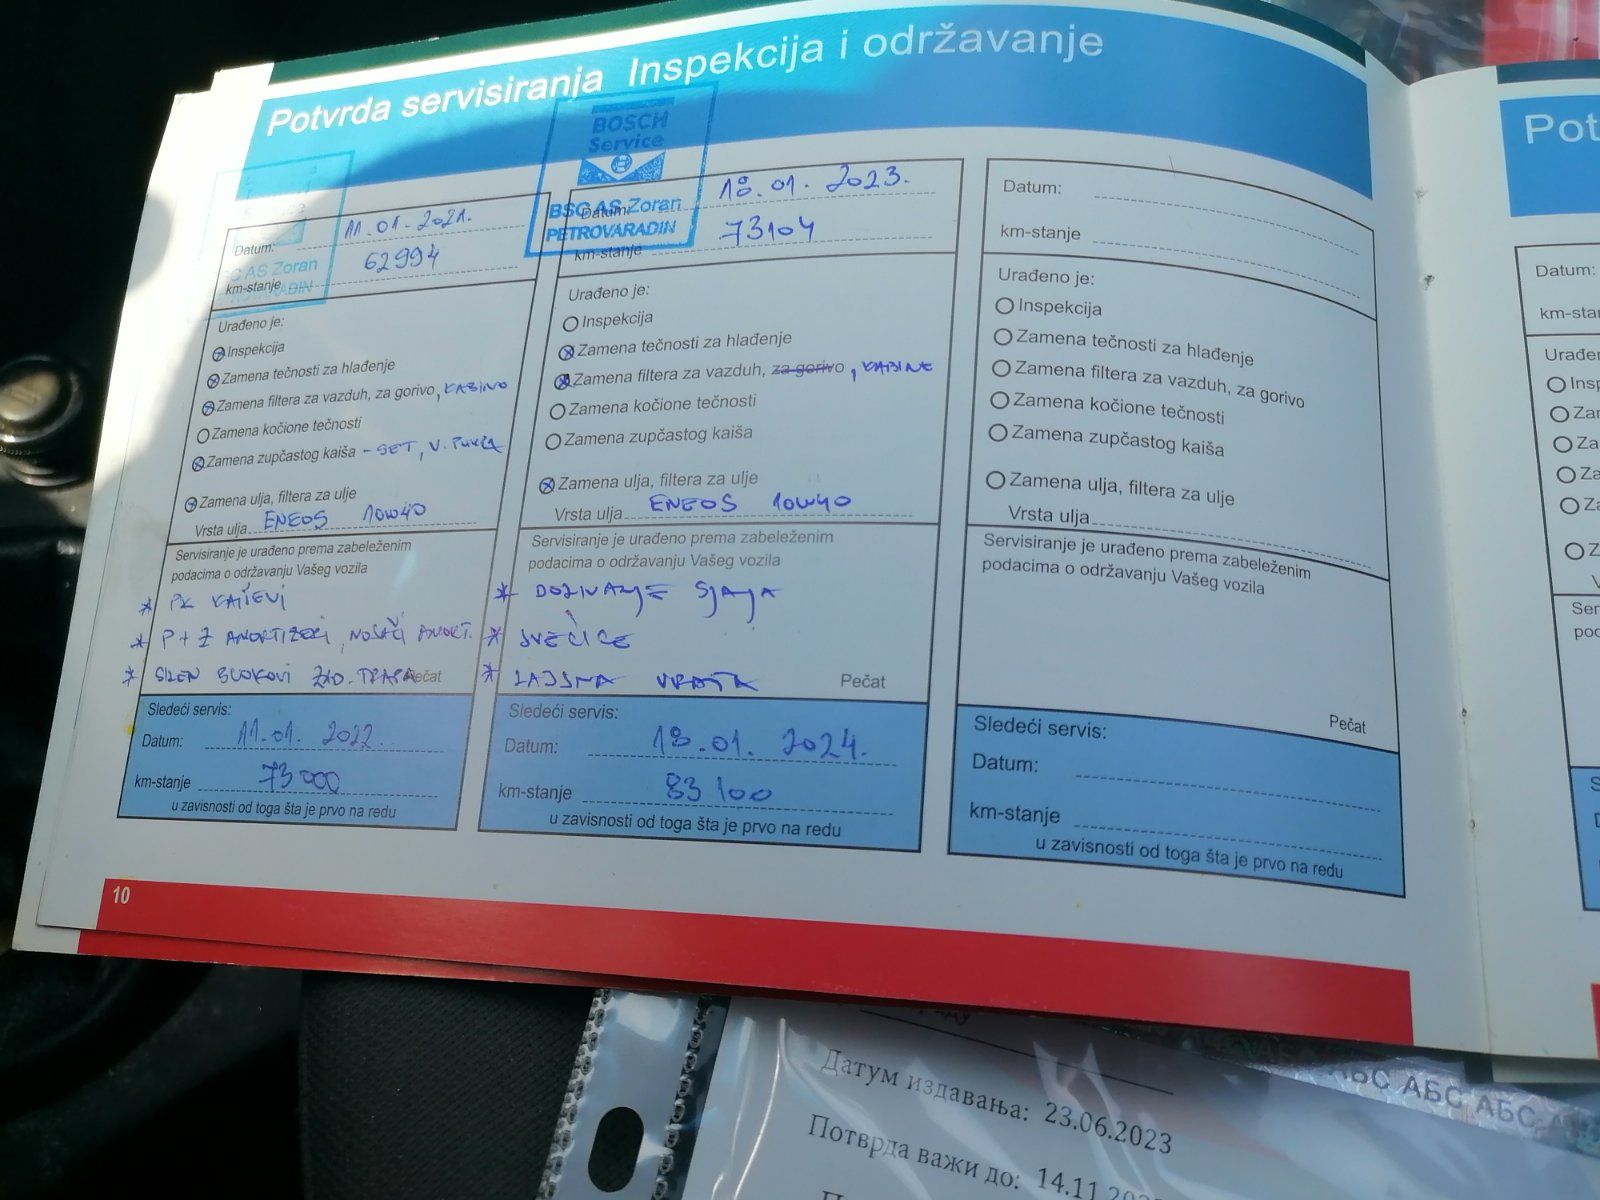 Potvrda servisiranja Inspekcija i održavanje
BOSCH
Service
BSC AS Zoran
PETROVARADIN
Datum: 11.01.2021.
km-stanje 62994
AS Zoran
Urađeno je:
Inspekcija
Zamena tečnosti za hlađenje
Zamena filtera za vazduh, za gorivo, KABINE
Zamena kočione tečnosti
Zamena zupčastog kaiša - SET, V. PUMPA
Zamena ulja, filtera za ulje
Vrsta ulja ENEOS 10W40
Servisiranje je urađeno prema zabeleženim
podacima o održavanju Vašeg vozila
* PK KAIŠEVI
* P+Z AMORTIZERI, NOSAČI AMORT.
* SILEN BLOKOVI ZAD. TRAPA
Pečat
Sledeći servis:
Datum: 11.01. 2022.
km-stanje 73000
u zavisnosti od toga šta je prvo na redu
Datum: 18.01.2023.
km-stanje 73104
Urađeno je:
Inspekcija
Zamena tečnosti za hlađenje
Zamena filtera za vazduh, za gorivo, KABINE
Zamena kočione tečnosti
Zamena zupčastog kaiša
Zamena ulja, filtera za ulje
Vrsta ulja ENEOS 10W40
Servisiranje je urađeno prema zabeleženim
podacima o održavanju Vašeg vozila
* DOZIVANJE SJAJA
* SVEĆICE
* LAJSNA VRATA
Pečat
Sledeći servis:
Datum: 18.01. 2024.
km-stanje 83100
u zavisnosti od toga šta je prvo na redu
Datum:
km-stanje
Urađeno je:
Inspekcija
Zamena tečnosti za hlađenje
Zamena filtera za vazduh, za gorivo
Zamena kočione tečnosti
Zamena zupčastog kaiša
Zamena ulja, filtera za ulje
Vrsta ulja
Servisiranje je urađeno prema zabeleženim
podacima o održavanju Vašeg vozila
Pečat
Sledeći servis:
Datum:
km-stanje
u zavisnosti od toga šta je prvo na redu
10
Pot
Datum:
km-sta
Urađe
Insp
Za
Za
Za
Za
Z
V
Ser
pod
S
АБС АБС АБС
Датум издавања: 23.06.2023
Потврда важи до: 14.11.20